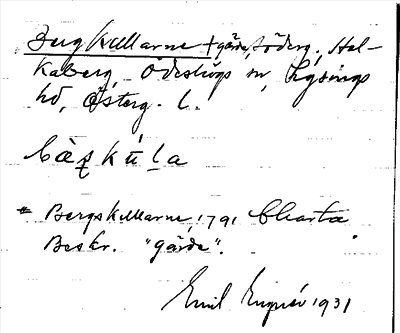 Bergkullarne † gärde, Söderg. Hal-
kaberg, Ödeshögs sn, Lysings
hd, Österg. l.
bà̀rkúla
Bergskullarne, 1791 Charta
Beskr. "gärde".
Emil Engnér 1931